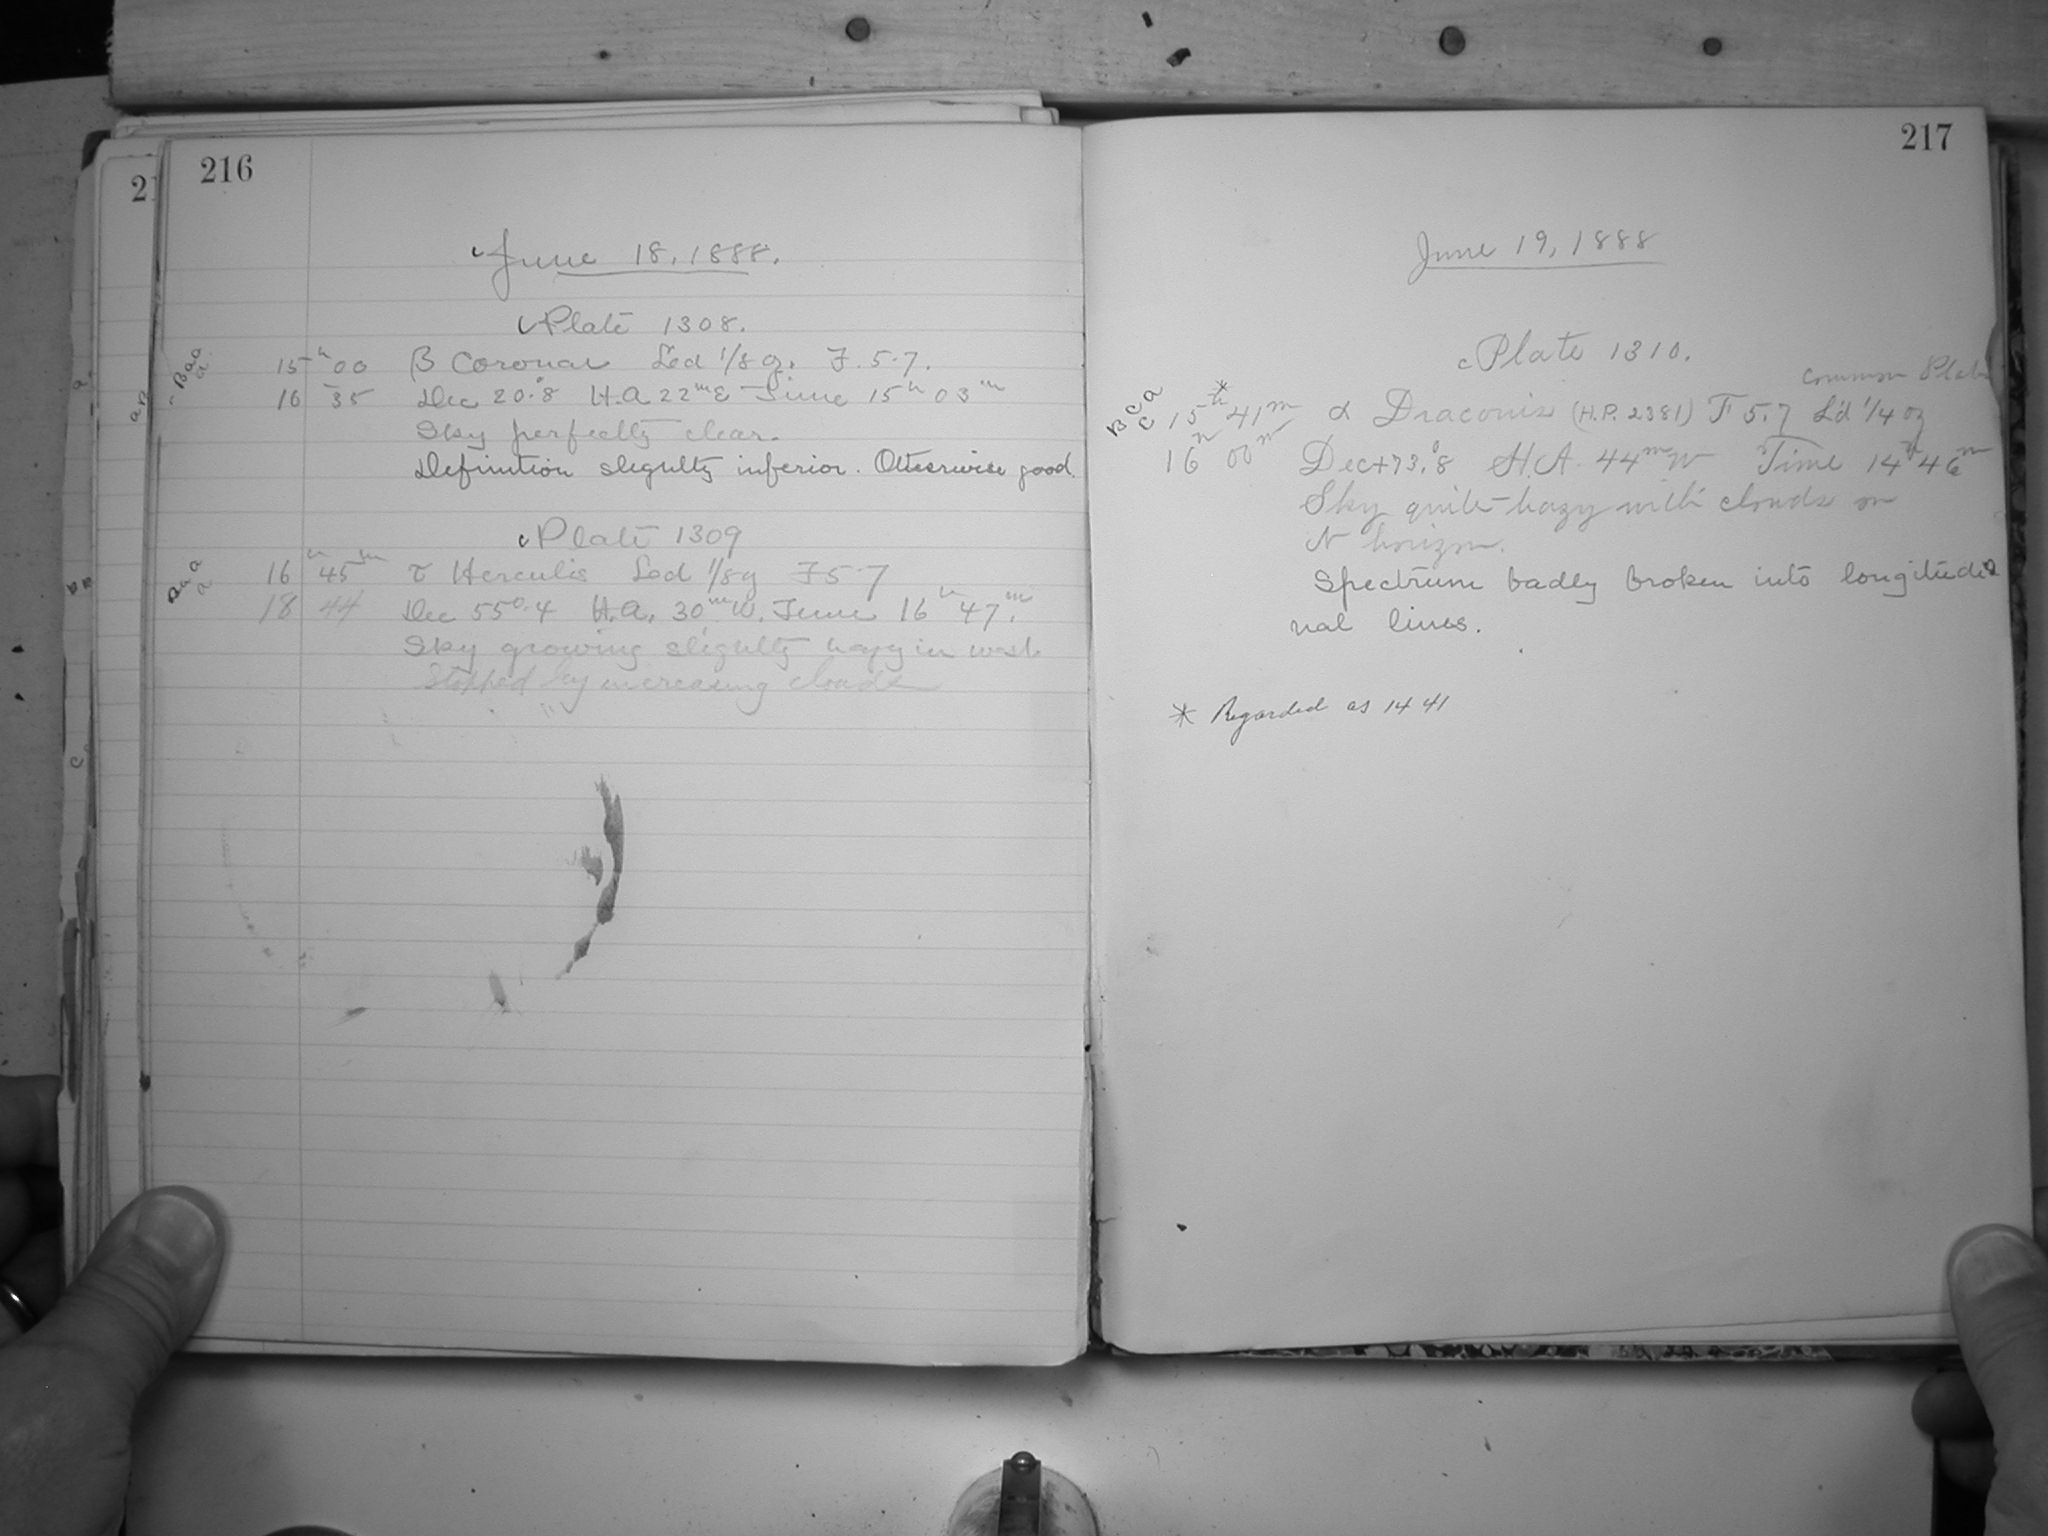 216
June 18, 1888.
Plate 1308.
Baa
a
15 h 00 β Coronae Led 1/8 g. F. 5.7.
16 35 Dec 20°.8 H.A 22m E Time 15h 03m
Sky perfectly clear.
Definition slightly inferior. Otherwise good.
Plate 1309
Baa
a
16h 45m τ Herculis Led 1/8 g F 5.7
18 44 Dec 55°.4 H.A. 30m W. Time 16h 47m.
Sky growing slightly hazy in west
Stopped by increasing clouds
217
June 19, 1888
Plate 1310.
Common Plate
B C a
C
15h* 41m α Draconis (H.P. 2381) F 5.7 L'd 1/4 oz
16h 00m Dec +73.°8 H.A. 44m W Time 14h 46m
Sky quite hazy with clouds on
N horizon.
Spectrum badly broken into longitudi
nal lines.
* Regarded as 14 41